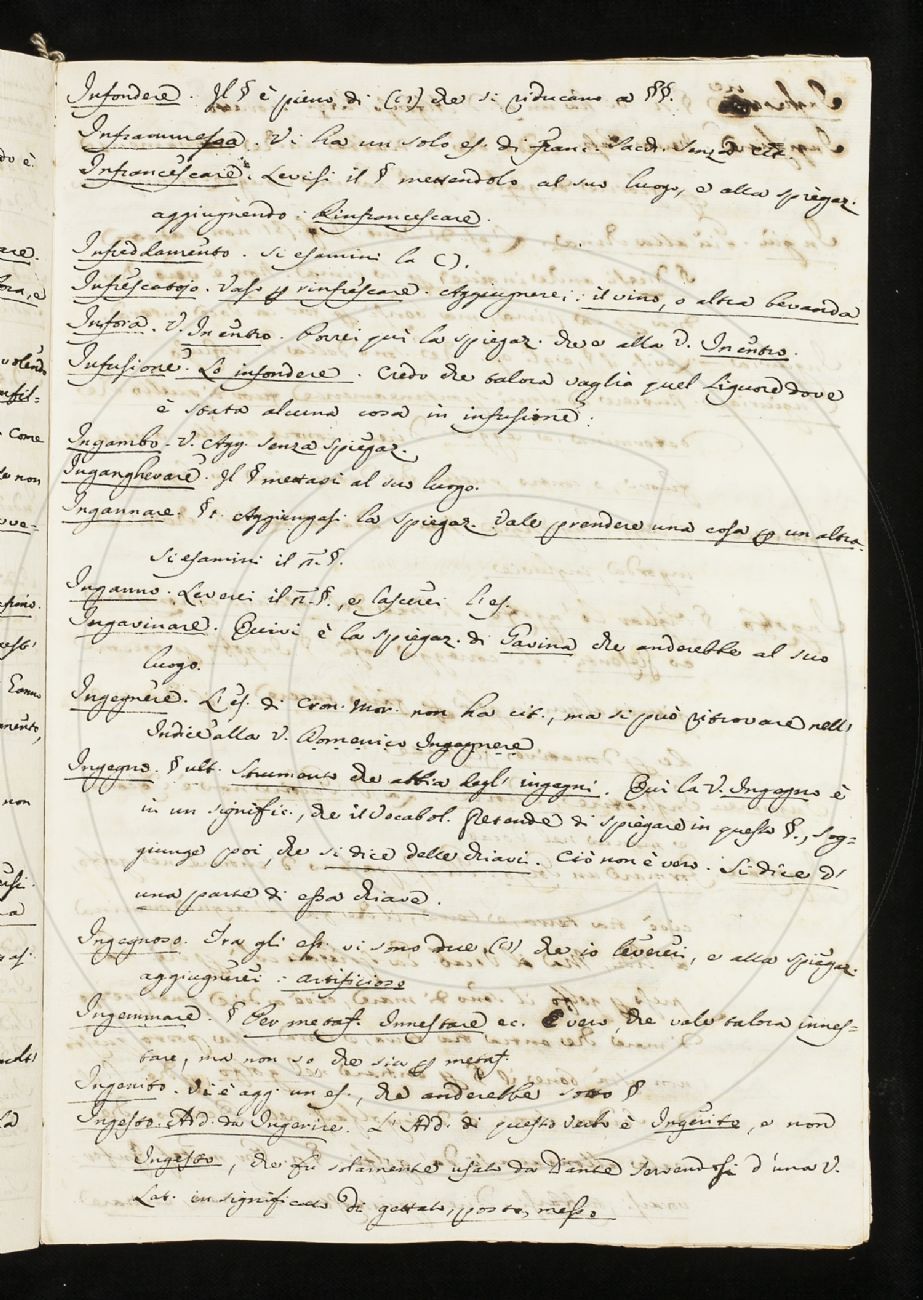 Infondere. Il § è pieno di (:) che si riducano a §§.
Inframmessa. Vi ha un solo es. di Franc. Sacch. senza cit.
Infrancescare. Levisi il § mettendolo al suo luogo, e alla spiegaz.
aggiugnendo: Rinfrancescare.
Infreddamento. Si esamini la ( ).
Infrescatojo. Vaso p rinfrescare. Aggiugnerei: il vino, o altra bevanda
Infora. V. In entro. Porrei qui la spiegaz. che è alla V. In entro.
Infusione. Lo infondere. Credo che talora vaglia quel Liquore dove
è stata alcuna cosa in infusione.
Ingambo. V. Agg. senza spiegaz.
Ingangherare. Il § mettasi al suo luogo.
Ingannare. § 1. Aggiungasi la spiegaz. Vale prendere una cosa p un altra.
Si esamini il n. §.
Inganno. Leverei il n. §., e lascerei l'es.
Ingavinare. Quivi è la spiegaz. di Gavina che anderebbe al suo
luogo.
Ingegnere. L'es. di Cron. Mor. non ha cit., ma si può ritrovare nell'
Indice alla V. Domenico Ingegnere
Ingegno. § ult. Strumento che abbia degl' ingegni. Qui la V. Ingegno è
in un signific., che il Vocabol. pretende di spiegare in questo §., sog=
giunge poi, che si dice delle chiavi. Ciò non è vero. Si dice d'
una parte di essa chiave.
Ingegnoso. Tra gli es. vi sono due (:) che io leverei, e alla spiegaz.
aggiugnerei: artificioso
Ingemmare. § Per metaf. Innestare ec. È vero, che vale talora innes=
tare, ma non so che sia p metaf.
Ingenito. Vi è agg. un es., che anderebbe sotto §
Ingesto. Add. da Ingerire. L'Add. di questo verbo è Ingerito, e non
Ingesto, che fu solamente usato da Dante servendosi d'una V.
Lat. in significato di gettato, posto, messo.